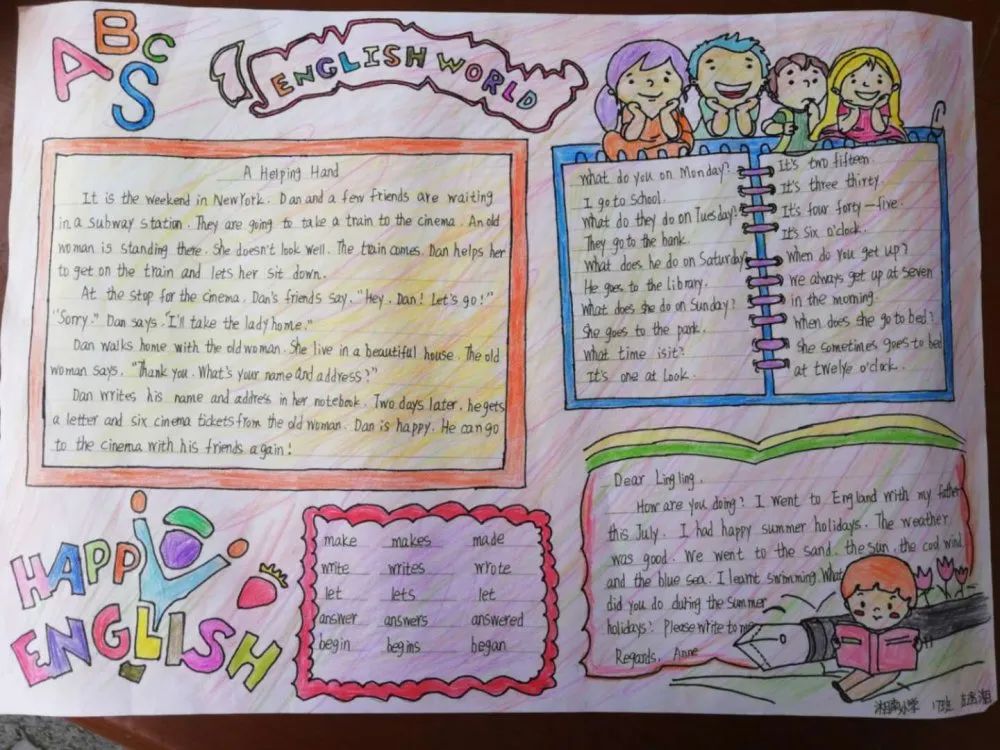 ABCS
ENGLISH WORLD
A Helping Hand
It is the weekend in NewYork. Dan and a few friends are waiting
in a subway station. They are going to take a train to the cinema. An old
woman is standing there. She doesn't look well. The train comes. Dan helps her
to get on the train and lets her sit down.
At the stop for the cinema. Dan's friends say. "Hey. Dan! Let's go!"
"Sorry." Dan says. "I'll take the lady home."
Dan walks home with the old woman. She live in a beautiful house. The old
woman says. "Thank you. What's your name and address?"
Dan writes his name and address in her notebook. Two days later. he gets
a letter and six cinema tickets from the old woman. Dan is happy. He can go
to the cinema with his friends again!
What do you on Monday?
I go to school.
What do they do on Tuesday?
They go to the bank.
What does he do on Saturday
He goes to the library.
What does she do on Sunday?
She goes to the park.
What time isit?
It's one at Look.
It's two fifteen.
It's three thirty.
It's four forty-five.
It's six o'clock.
When do you get up?
We always get up at seven
in the morning.
When does she go to bed?
She sometimes goes to bed
at twelye o'clock.
HAPPY
ENGLISH
make makes made
write writes wrote
let lets let
answer answers answered
begin begins began
Dear Lingling.
How are you doing? I went to England with my father
this July. I had happy summer holidays. The weather
was good. We went to the sand. the sun. the cool wind
and the blue sea. I learnt swimming. What
did you do during the summer
holidays? Please write to me
Regards. Anne
湘南小学 17班